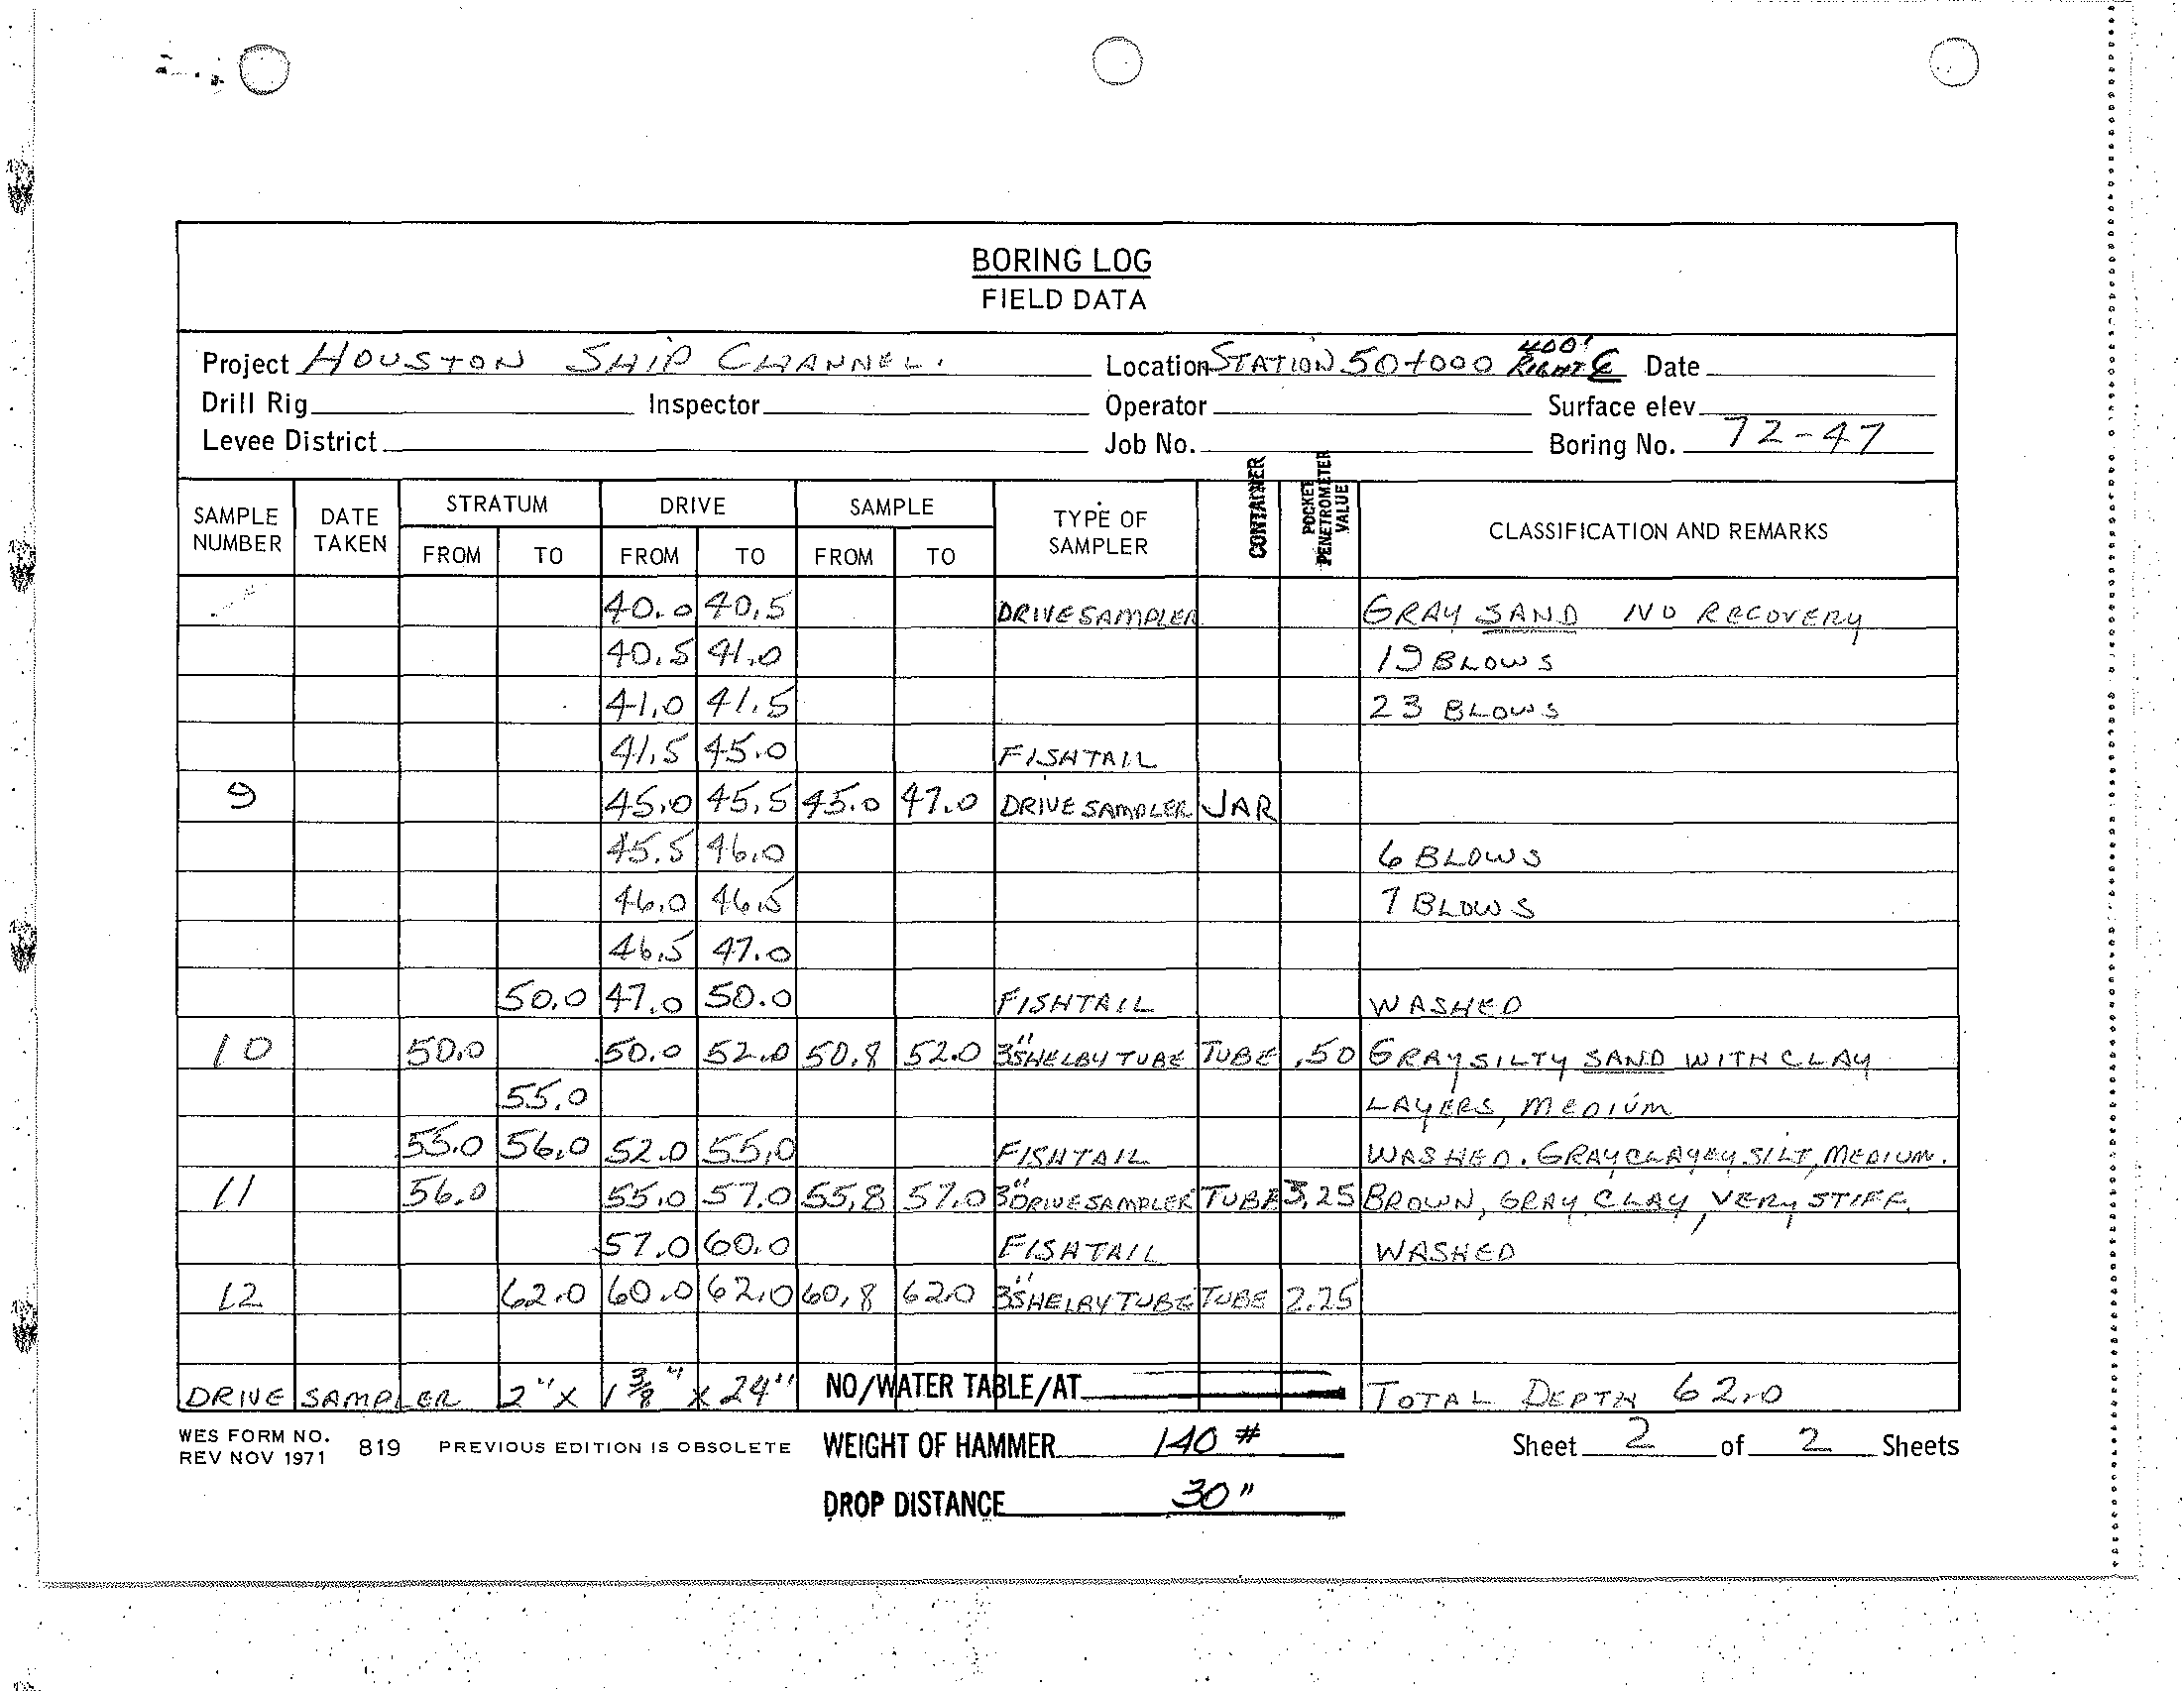 BORING LOG
FIELD DATA
Project HOUSTON SHIP CHANNEL. Location STATION 50+000 400' RIGHT ℄ Date
Drill Rig Inspector Operator Surface elev.
Levee District Job No. Boring No. 72-47
SAMPLE NUMBER DATE TAKEN STRATUM FROM TO DRIVE FROM TO SAMPLE FROM TO TYPE OF SAMPLER CONTAINER POCKET PENETROMETER VALUE CLASSIFICATION AND REMARKS
40.0 40.5 DRIVE SAMPLER GRAY SAND NO RECOVERY
40.5 41.0 19 BLOWS
41.0 41.5 23 BLOWS
41.5 45.0 FISHTAIL
9 45.0 45.5 45.0 47.0 DRIVE SAMPLER JAR
45.5 46.0 6 BLOWS
46.0 46.5 7 BLOWS
46.5 47.0
50.0 47.0 50.0 FISHTAIL WASHED
10 50.0 50.0 52.0 50.8 52.0 3" SHELBY TUBE TUBE .50 GRAY SILTY SAND WITH CLAY
55.0 LAYERS, MEDIUM
55.0 56.0 52.0 55.0 FISHTAIL WASHED. GRAY CLAYEY SILT, MEDIUM.
11 56.0 55.0 57.0 55.8 57.0 3" DRIVE SAMPLER TUBE 3.25 BROWN, GRAY CLAY, VERY STIFF.
57.0 60.0 FISHTAIL WASHED
12 62.0 60.0 62.0 60.8 62.0 3" SHELBY TUBE TUBE 2.25
DRIVE SAMPLER 2" X 1 3/8" X 24" NO/WATER TABLE/AT TOTAL DEPTH 62.0
WES FORM NO. 819 PREVIOUS EDITION IS OBSOLETE WEIGHT OF HAMMER 140 # Sheet 2 of 2 Sheets
REV NOV 1971
DROP DISTANCE 30"